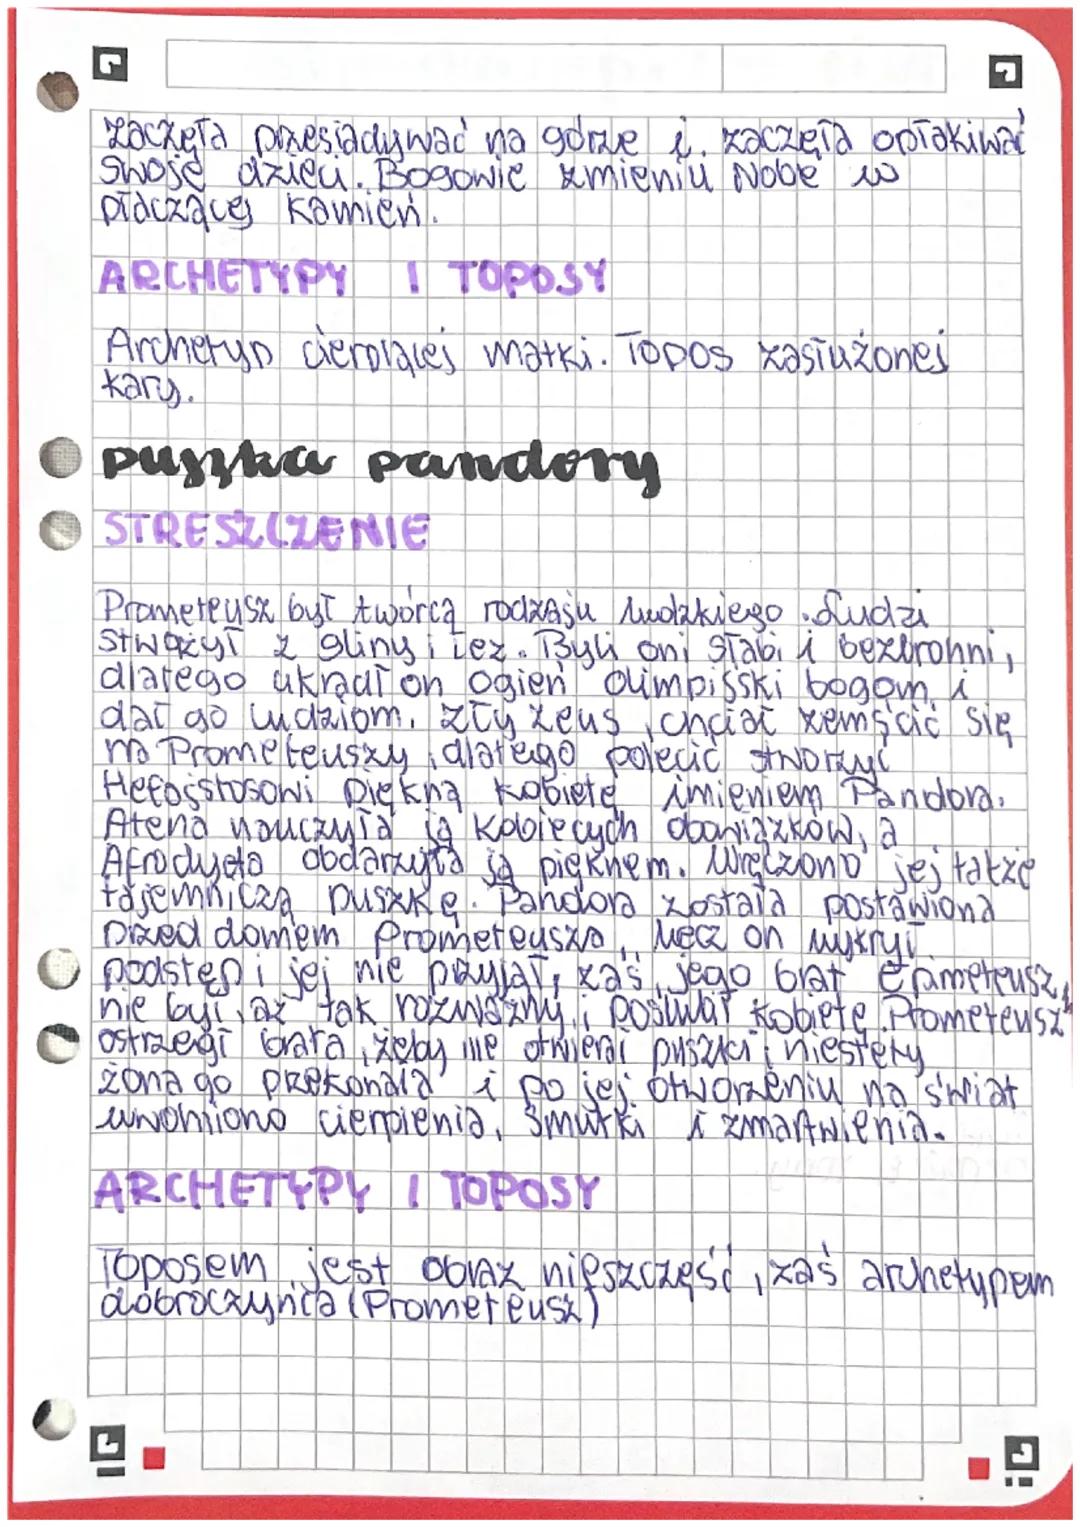 zaczęła przesiadywać na górze i. zaczęła opłakiwać
swoje dzieci. Bogowie zmienili Nobe w
płaczącej kamień.
ARCHETYPY I TOPOSY
Archetyp cierpiącej matki. Topos zasłużonej
kary.
puszka pandory
STRESZCZENIE
Prometeusz był twórcą rodzaju ludzkiego. Ludzi
stważył z gliny i łez. Byli oni słabi i bezbronni,
dlatego ukradł on ogień olimpijski bogom i
dał go ludziom. Zły Zeus, chciał zemścić się
na Prometeuszy, dlatego polecić stworzyć
Hefajstosowi piękną kobietę imieniem Pandora.
Atena nauczyła ją kobiecych obowiązków, a
Afrodyta obdarzyła ją pięknem. Wręczono jej także
tajemniczą puszkę. Pandora została postawiona
przed domem Prometeusza, lecz on wykrył
podstęp i jej nie przyjął, zaś jego brat Epimeteusz,
nie był, aż tak rozważny, i poślubił kobietę. Prometeusz
ostrzegł brata, żeby nie otwierał puszki, niestety
żona go przekonała i po jej otworzeniu na świat
uwolniono cierpienia, smutki i zmartwienia.
ARCHETYPY I TOPOSY
Toposem jest obraz nieszczęść, zaś archetypem
dobroczyńca (Prometeusz)